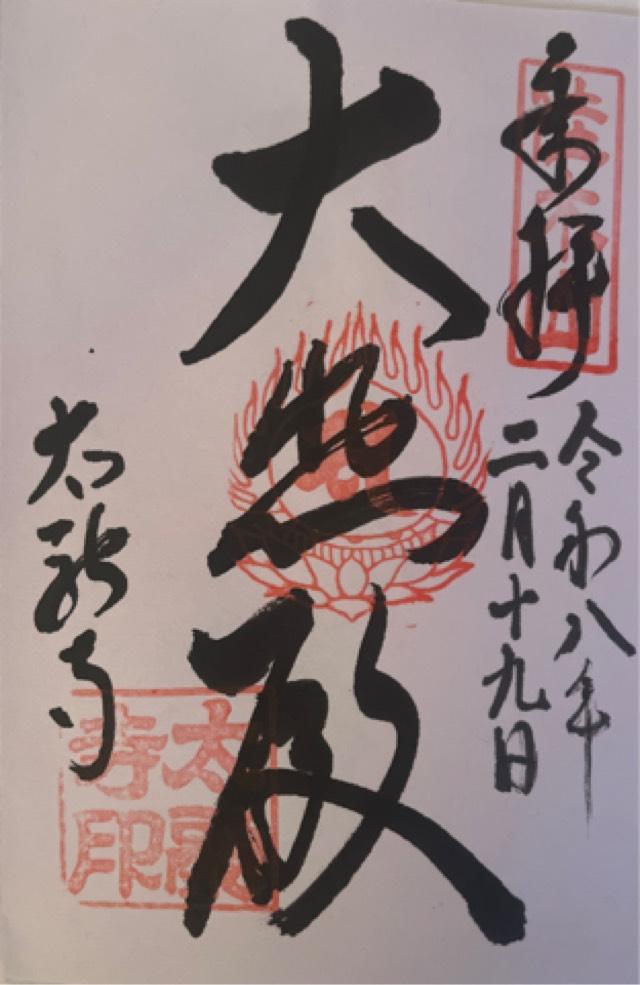 奉拝
令和八年
二月十九日
大悲殿
太融寺
太融
寺印